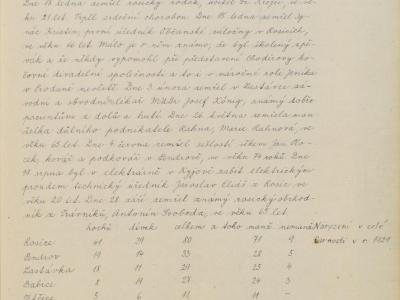 Dne 13 ledna zemřel rosický rodák, učitel Al. Krejčí, ve vě-
ku 21 let. Trpěl srdeční chorobou. Dne 18. ledna zemřel Sy-
náč Kristin, první úředník Občanské záložny v Rosicích,
ve věku 46 let. Málo je o něm známo, že byl školený zpě-
vák a že někdy vypomohl při představení Chodživy ko-
čovné divadelní společnosti a to i v náročné role Jeníka
v Prodané nevěstě. Dne 3. února zemřel v Zastávce zá-
vodní a obvodní lékař MUDr Josef König, známý dobře
pacientům z dolů a hutí. Dne 26. května zemřela man-
želka důlního podnikatele Kahna, Marie Kahnová, ve
věku 63 let. Dne 4 června zemřel sešlostí věkem Jan Ko-
cek, kovář a podkovář v Bendově, ve věku 74 roků. Dne
18 srpna byl v elektrárně v Kyjově zabit elektrickým
proudem technický úředník Jaroslav z Rosic ve
věku 20 let. Dne 28. září zemřel známý rosický obchod-
ník z Trávníků, Antonín Svoboda, ve věku 65 let.
hochů dívek celkem z toho manž. nemanž. Narození v celé
Rosice 41 39 80 71 9 farnosti v r. 1929
19 14 33 28 5
Zastávka 18 11 29 25 4
Babice 8 19 27 24 3
5 6 11 11 —